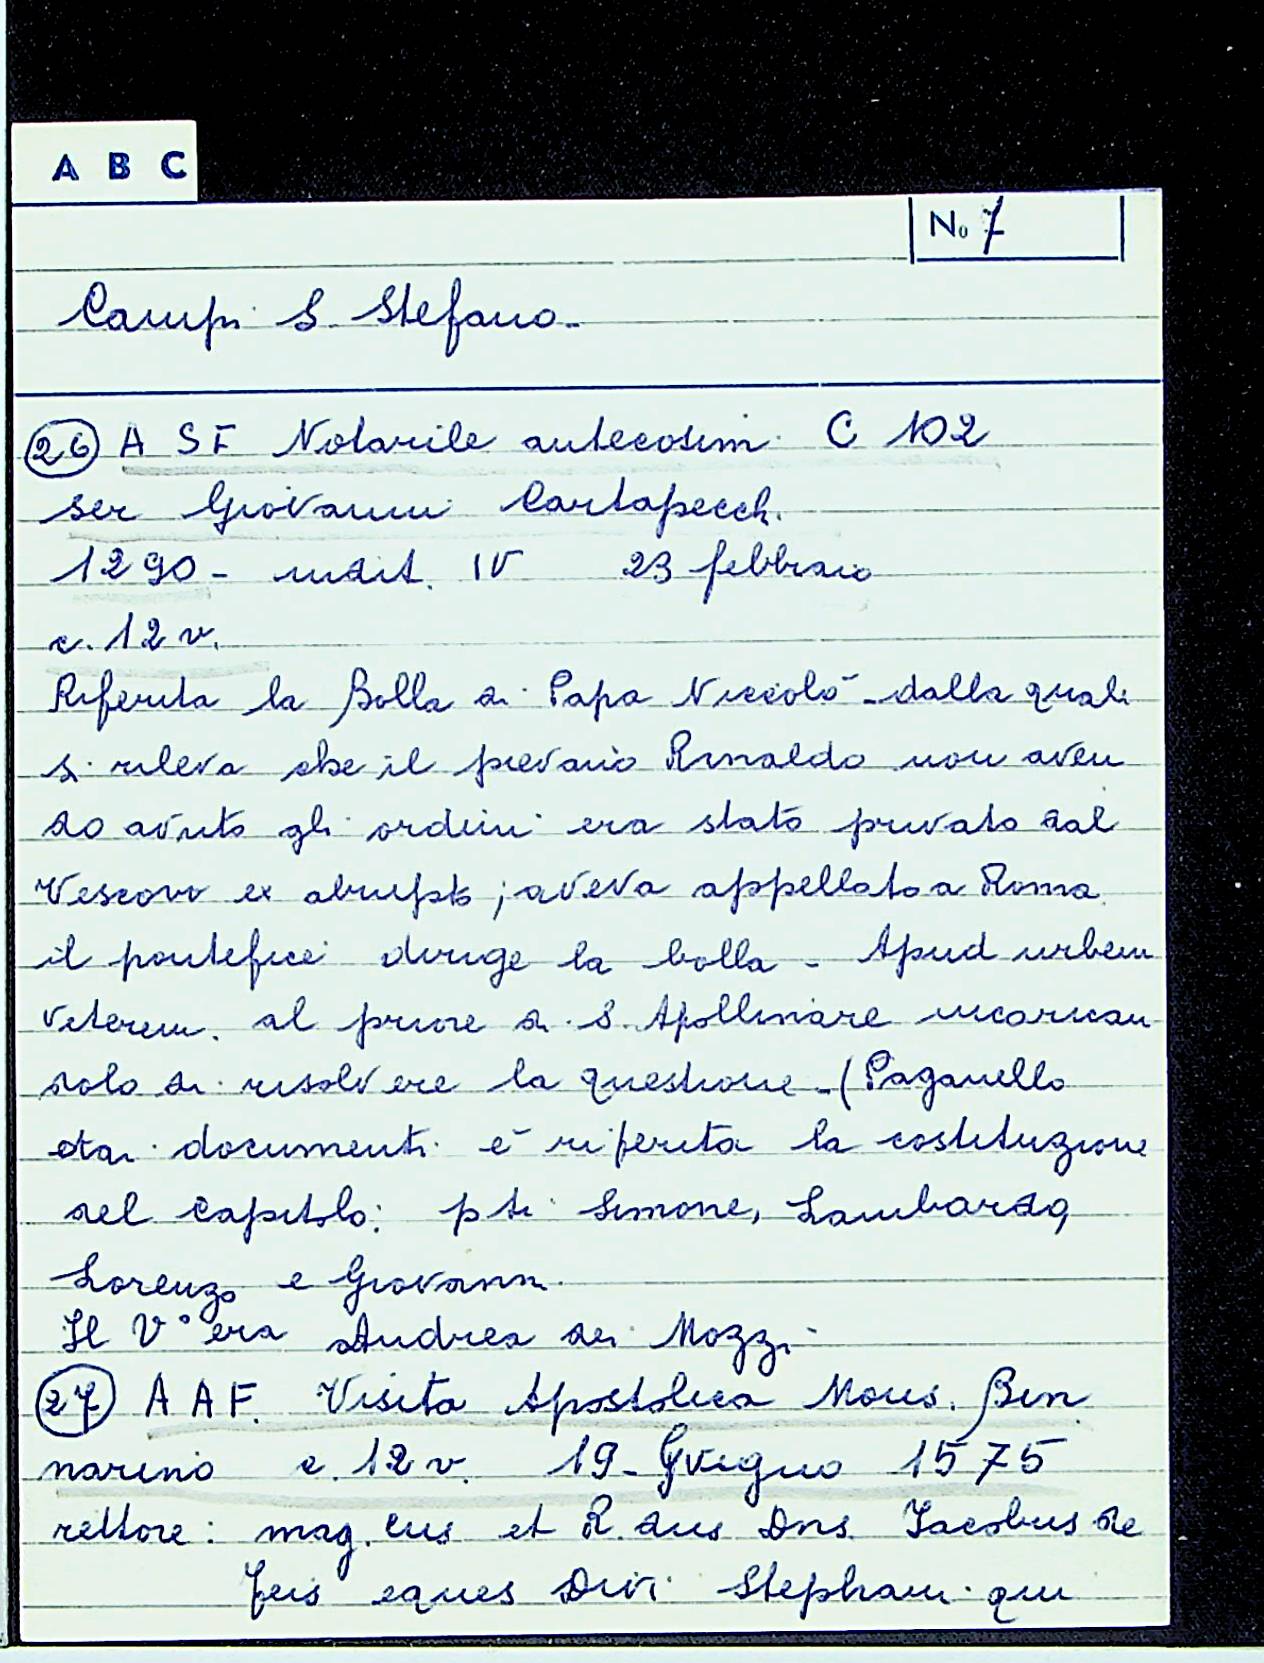 A B C
No 7
Campi S. Stefano -
26 A S F Notarile antecosim. C 102
ser Giovanni Cartapecch.
1290 - indit. IV 23 febbraio
c. 12 v.
Riferita la Bolla di Papa Niccolò - dalla quale
si rileva che il pievano Rinaldo non aven
do avuto gli ordini era stato privato dal
Vescovo ex abrupto; aveva appellato a Roma
il pontefice dirige la bolla - Apud urbem
veterem. al priore di S. Apollinare incarican
dolo di risolvere la questione - (Paganello
dai documenti è riferita la costituzione
del Capitolo: pti Simone, Lambardo,
Lorenzo e Giovanni.
Il V° era Andrea dei Mozzi -
27 A A F. Visita Apostolica Mons. Bin
narino c. 12 v. 19 - Giugno 1575
rettore: mag.cus et R.dus Dns. Jacobus de
eques Divi Stephani qui